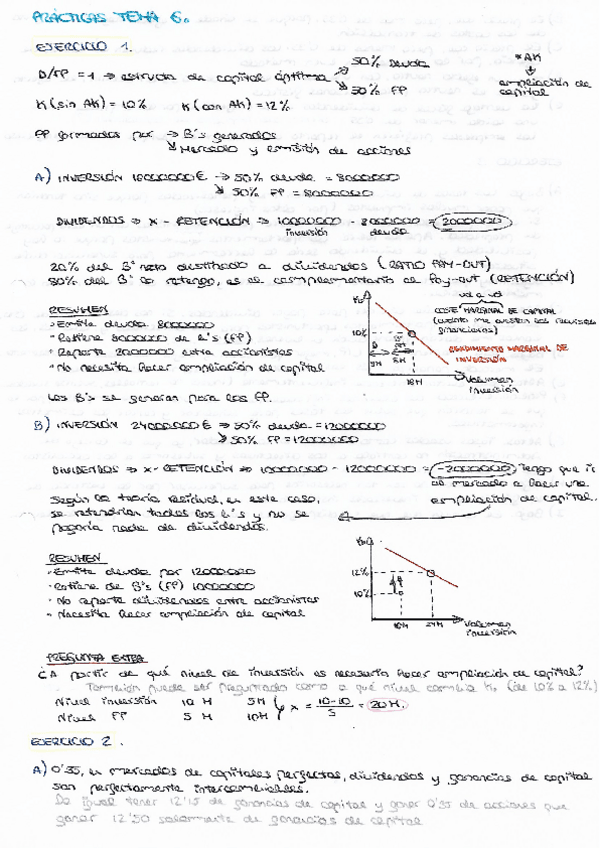 PRÁCTICAS TEMA 6.
EJERCICIO 1.
D/FP = 1 → estructura de capital óptima
50% deuda
50% FP
*AK
↓
ampliación de
capital
K (sin AK) = 10% K (con AK) = 12%
FP formados por → B's generados
↘ Mercado y emisión de acciones
A) INVERSIÓN 16000000€ → 50% deuda = 8000000
↘ 50% FP = 8000000
DIVIDENDOS ⇒ X - RETENCIÓN ⇒ 10000000 - 8000000 = 2000000
inversión deuda
20% del Bº neto destinado a dividendos (RATIO PAY-OUT)
80% del Bº lo retengo, es el complementario al Pay-out (RETENCIÓN)
RESUMEN
· Emite deuda 8000000
· Retiene 8000000 de b's (FP)
· Reparte 2000000 entre accionistas
· No necesita hacer ampliación de capital
Los B's se generan para los FP.
COSTE MARGINAL DE CAPITAL
(cuánto me cuestan los recursos
financieros)
RENDIMIENTO MARGINAL DE
INVERSIÓN
10%
D
8M
8M
16M
Volumen
inversión
B) INVERSIÓN 24000000€ ⇒ 50% deuda = 12000000
↘ 50% FP = 12000000
DIVIDENDOS ⇒ X - RETENCIÓN ⇒ 10000000 - 12000000 = -2000000 Tengo que ir
al mercado a hacer una
ampliación de capital.
Según la teoría residual, en este caso,
se retendrían todos los b's y no se
pagaría nada de dividendos.
RESUMEN
· Emite deuda por 12000000
· Retiene de B's (FP) 10000000
· No reparte dividendos entre accionistas
· Necesita hacer ampliación de capital
12%
10%
24M
Volumen
inversión
PREGUNTA EXTRA
¿A partir de qué nivel de inversión es necesario hacer ampliación de capital?
También puede ser preguntado como a qué nivel cambia K₀ (de 10% a 12%)
Nivel inversión 10 M X
Nivel FP 5 M 10M
x = 10·10 / 5 = 20M.
EJERCICIO 2.
A) 0'35, en mercados de capitales perfectos, dividendos y ganancias de capital
son perfectamente intercambiables.
Da igual tener 12'15 de ganancias de capital y ganar 0'35 de acciones que
ganar 12'50 solamente de ganancias de capital